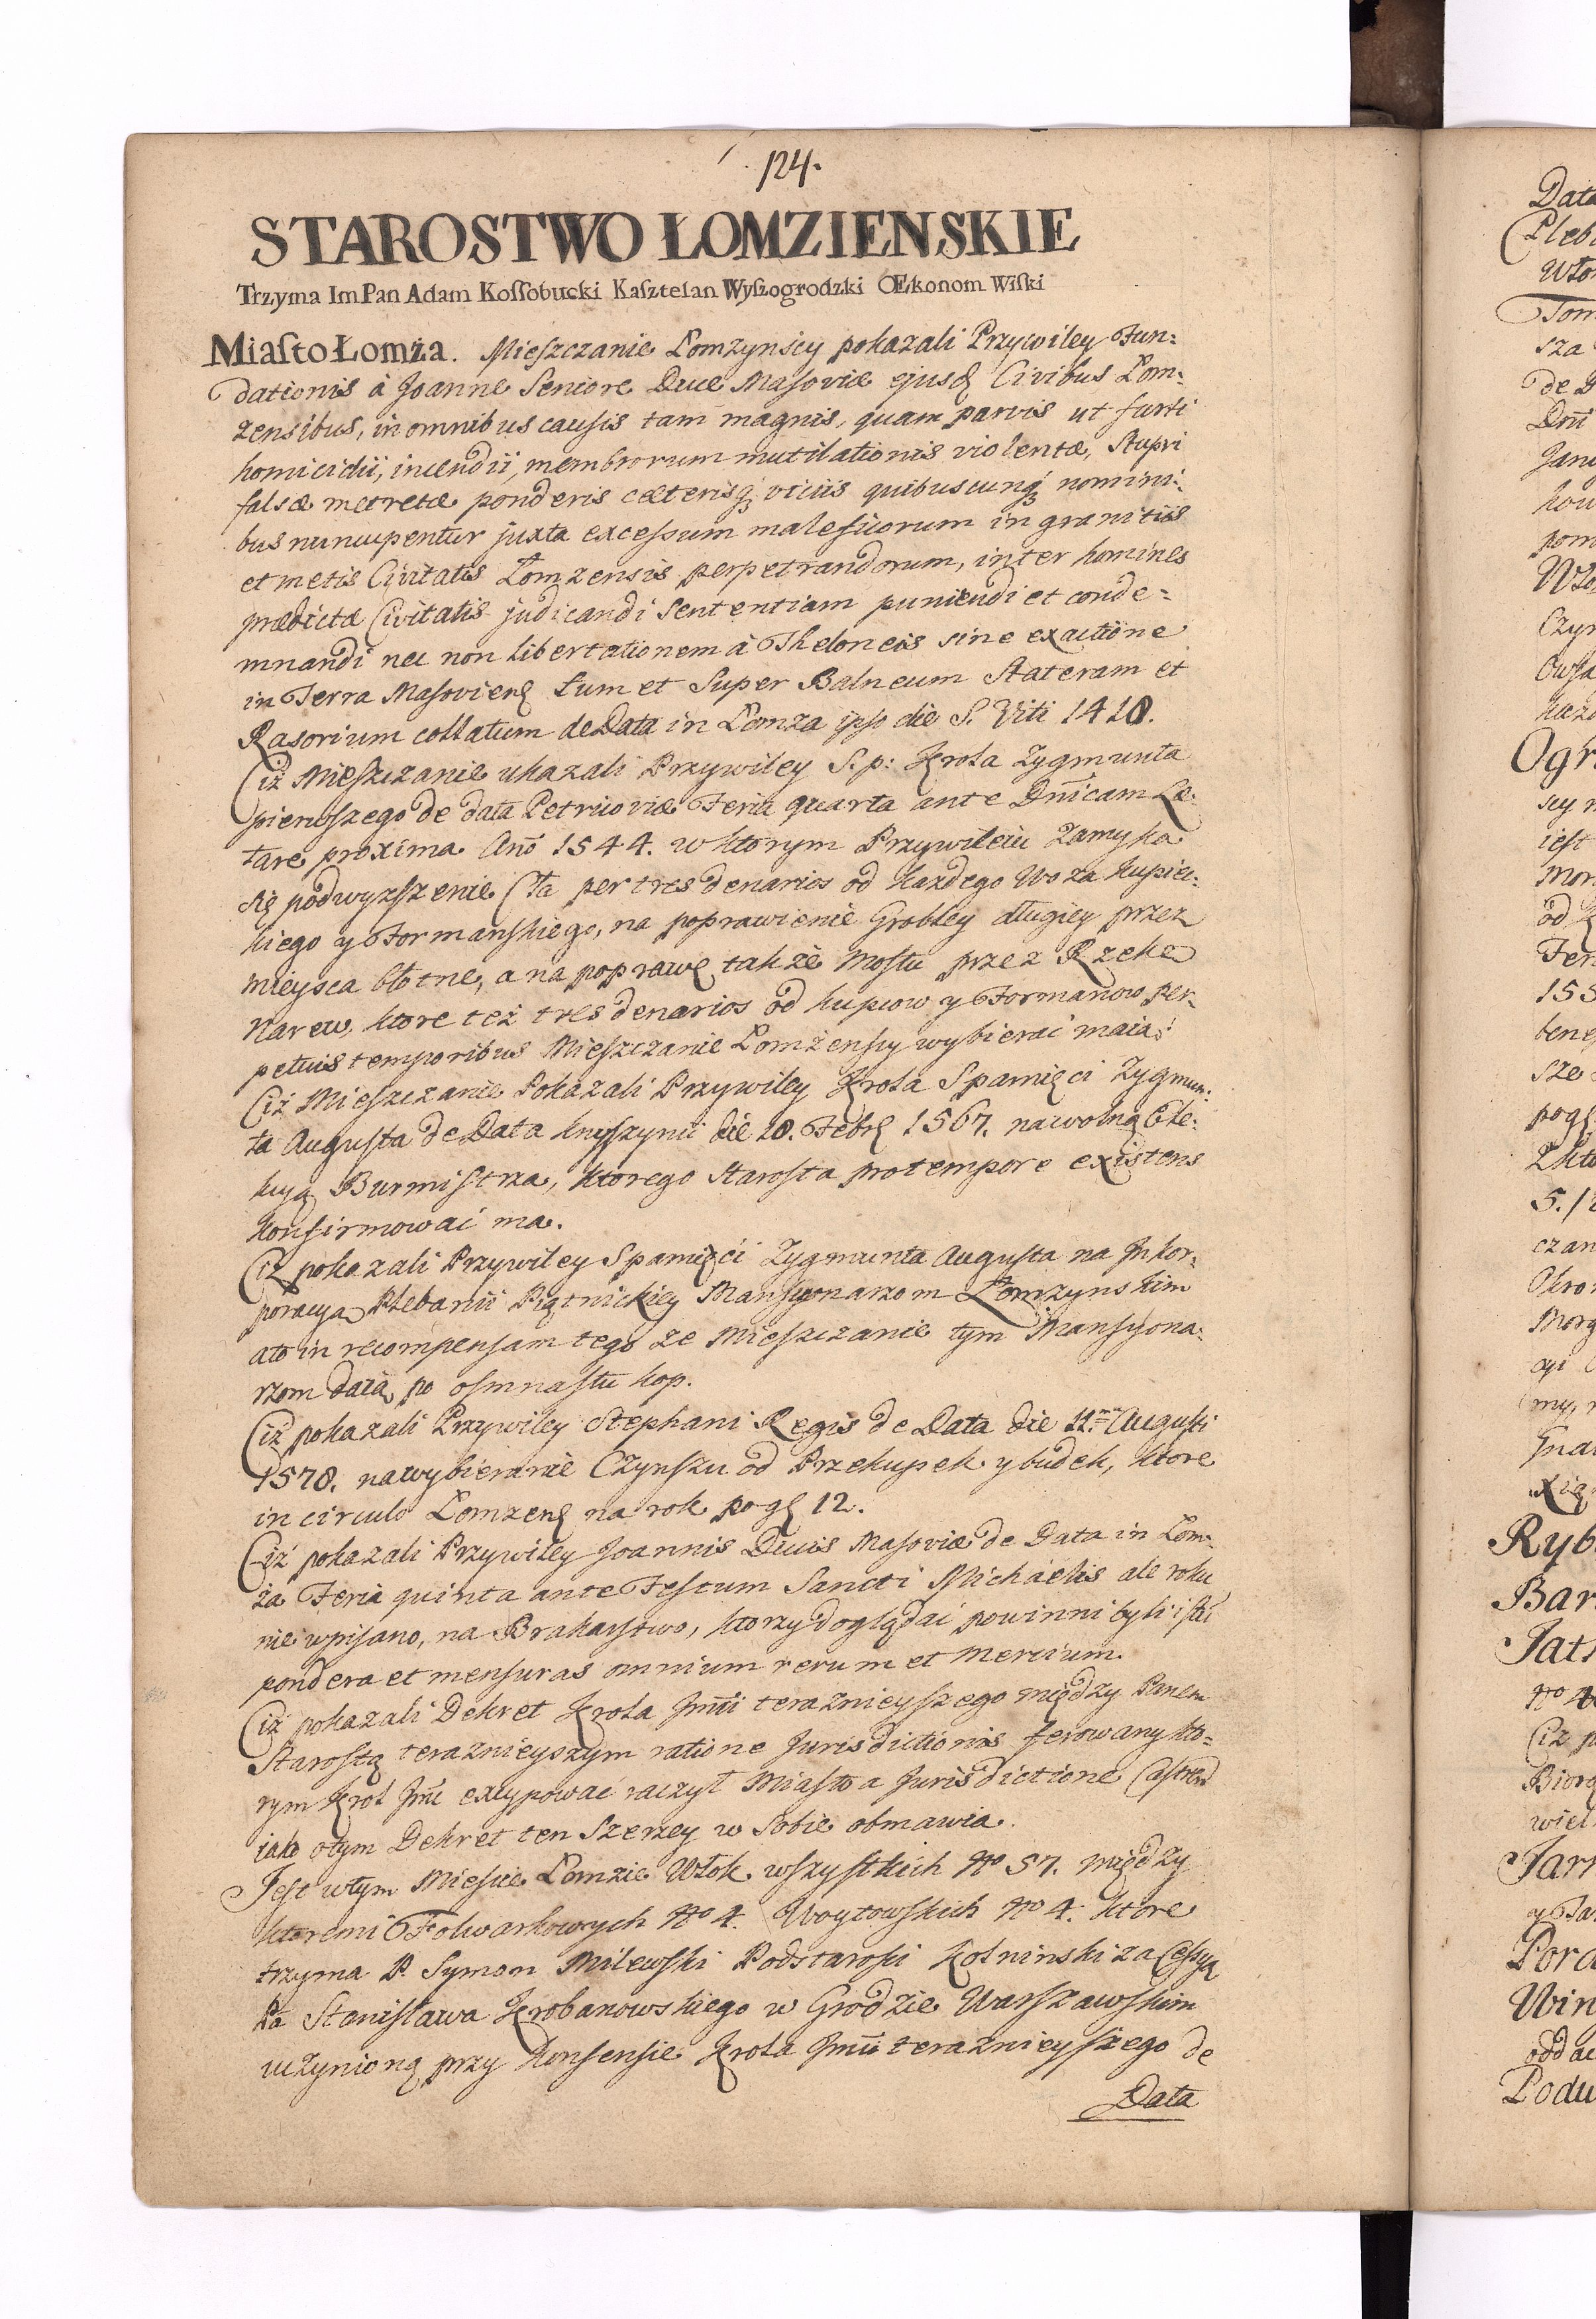 124.
STAROSTWO ŁOMZIENSKIE
Trzyma Im Pan Adam Koſſobucki Kaſztelan Wyſzogrodzki Œkonom Wiſki
Miaſto Łomża. Mieſzczanie Łomzynscy pokazali Przywiley Fun:
dationis à Joanne Seniore Duce Maſoviæ ejusꝗ Civibus Lom:
zensibus, in omnibus causis tam magnis, quam parvis ut furti
homicidii, incendii, membrorum mutilationis violentæ, Stupri
falsæ metretæ ponderis cæterisꝗ viciis quibuscunꝗ nomini:
bus nuncupentur juxta exceſsum maleficorum in granitiis
et metis Civitatis Łomzensis perpetrandorum, inter homines
prædictæ Civitatis judicandi Sententiam puniendi et conde=
mnandi nec non libertationem à Theloneis sine exactione
in Terra Maſovienſ tum et Super Balneum Stateram et
Rasorium collatum de Data in Łomza ipſo die S. Viti 1418.
Ciż Mieſzczanie ukazali Przywiley S. p: Krola Zygmunta
pierwſzego de data Petricoviæ Feria quarta ante Dnicam Læ:
tare proxima Año 1544. w ktorym Przywileiu Zamyka
się podwyzſzenie Cła per tres denarios od każdego Woza Kupiec:
kiego y Formanſkiego, na poprawienie Grobley długiey przez
mieysca błotne, a na poprawę także Moſtu przez Rzekę
Narew, ktore też tres denarios od kupcow y Formanow per:
petuis temporibus Mieſzczanie Łomżenſcy wybierać maią.
Ciż Mieſzczanie Pokazali Przywiley Krola S pamięci Zygmun:
ta Auguſta de Data Knyſzynii die 20. Febrſ 1567. na wolną Ele:
kcyą Burmiſtrza, ktorego Staroſta pro tempore existens
konfirmować ma.
Ciż pokazali Przywiley S pamięći Zygmunta Auguſta na Inkor:
poracyą Plebanii Piątnickiey Manſyonarzom Łomzynskim
a to in recompenſam tego ze Mieſzczanie tym Manſyona:
rzom daią po oſmnaſtu kop.
Ciż pokazali Przywiley Stephani Regis de Data die 12. Auguſti
1578. na wybieranie Czynſzu od Przekupek y budek, ktore
in circulo Łomzenſ na rok po gſ 12.
Ciż pokazali Przywiley Joannis Ducis Maſoviæ de Data in Łom:
ża Feria quinta ante Feſtum Sancti Michaëlis ale roku
nie wpiſano, na Brakarſtwo, ktorzy doglądać powinni byli iſti
pondera et menſuras omnium rerum et Mercium.
Ciż pokazali Dekret Krola Jmci teraznieyſzego między Panem
Staroſtą teraznieyszym ratione Jurisdictionis ferowany kto=
rym Krol Jmć excypować raczył Miaſto a Jurisdictione Caſtren
iako o tym Dekret ten Szerzey w Sobie obmawia.
Jeſt w tym Mieſcie Łomzie Włok wſzyſtkich Nº 57. między
ktoremi Folwarkowych Nº 4. Woytowſkich Nº 4. ktore
trzyma P. Symon Milewſki Podstaroſci Kolninski za Ceſsyą
Pa Staniſława Krobanowskiego w Grodzie Warſzawſkim
uczynioną przy konſenſie Krola Jmci teraznieyſzego de
Data